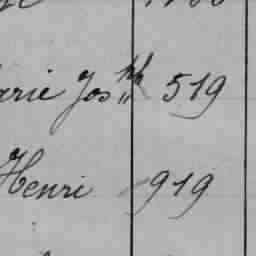 arie Josph 519
Henri 919